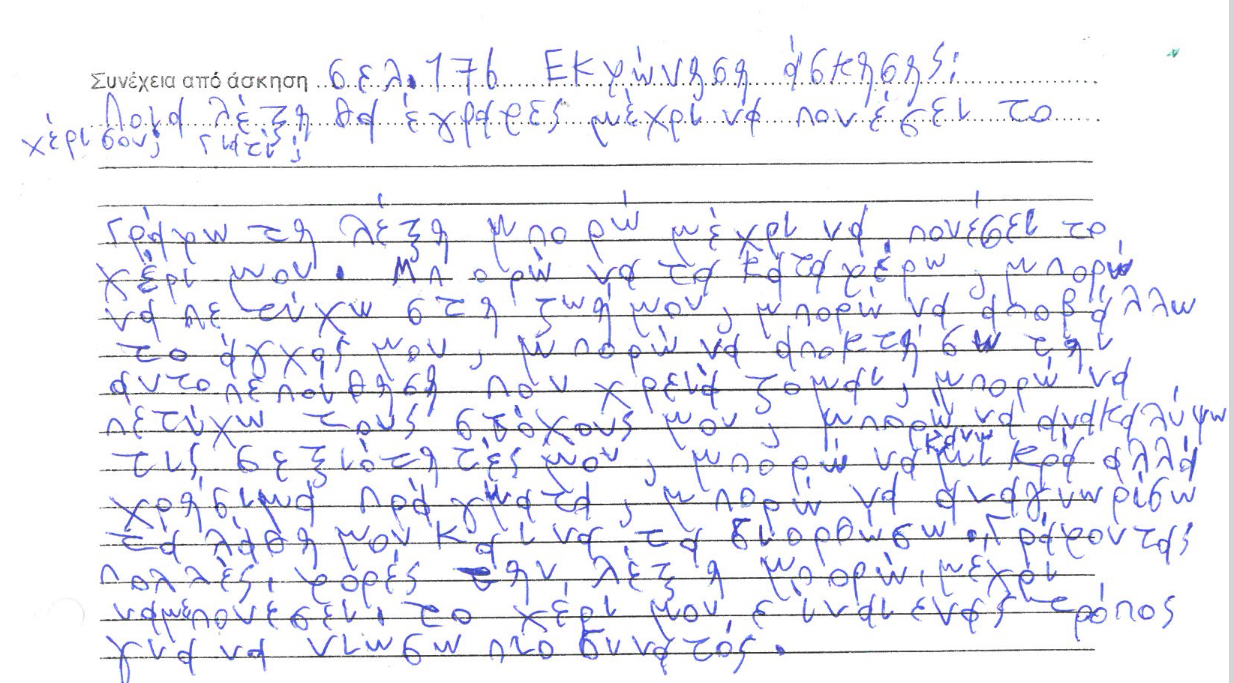 Συνέχεια από άσκηση σελ. 176 Εκφώνηση άσκησης:
Ποια λέξη θα έγραφες μέχρι να πονέσει το
χέρι σου; Γιατί;
Γράφω τη λέξη μπορώ μέχρι να πονέσει το
χέρι μου. Μπορώ να τα καταφέρω, μπορώ
να πετύχω στη ζωή μου, μπορώ να αποβάλλω
το άγχος μου, μπορώ να αποκτήσω την
αυτοπεποίθηση που χρειάζομαι, μπορώ να
πετύχω τους στόχους μου, μπορώ να ανακαλύψω
τις δεξιότητές μου, μπορώ να κάνω μικρά αλλά
χρήσιμα πράγματα, μπορώ να αναγνωρίσω
τα λάθη μου και να τα διορθώσω. Γράφοντας
πολλές φορές την λέξη μπορώ, μέχρι
να με πονέσει το χέρι μου είναι ένας τρόπος
για να νιώσω πιο δυνατός.